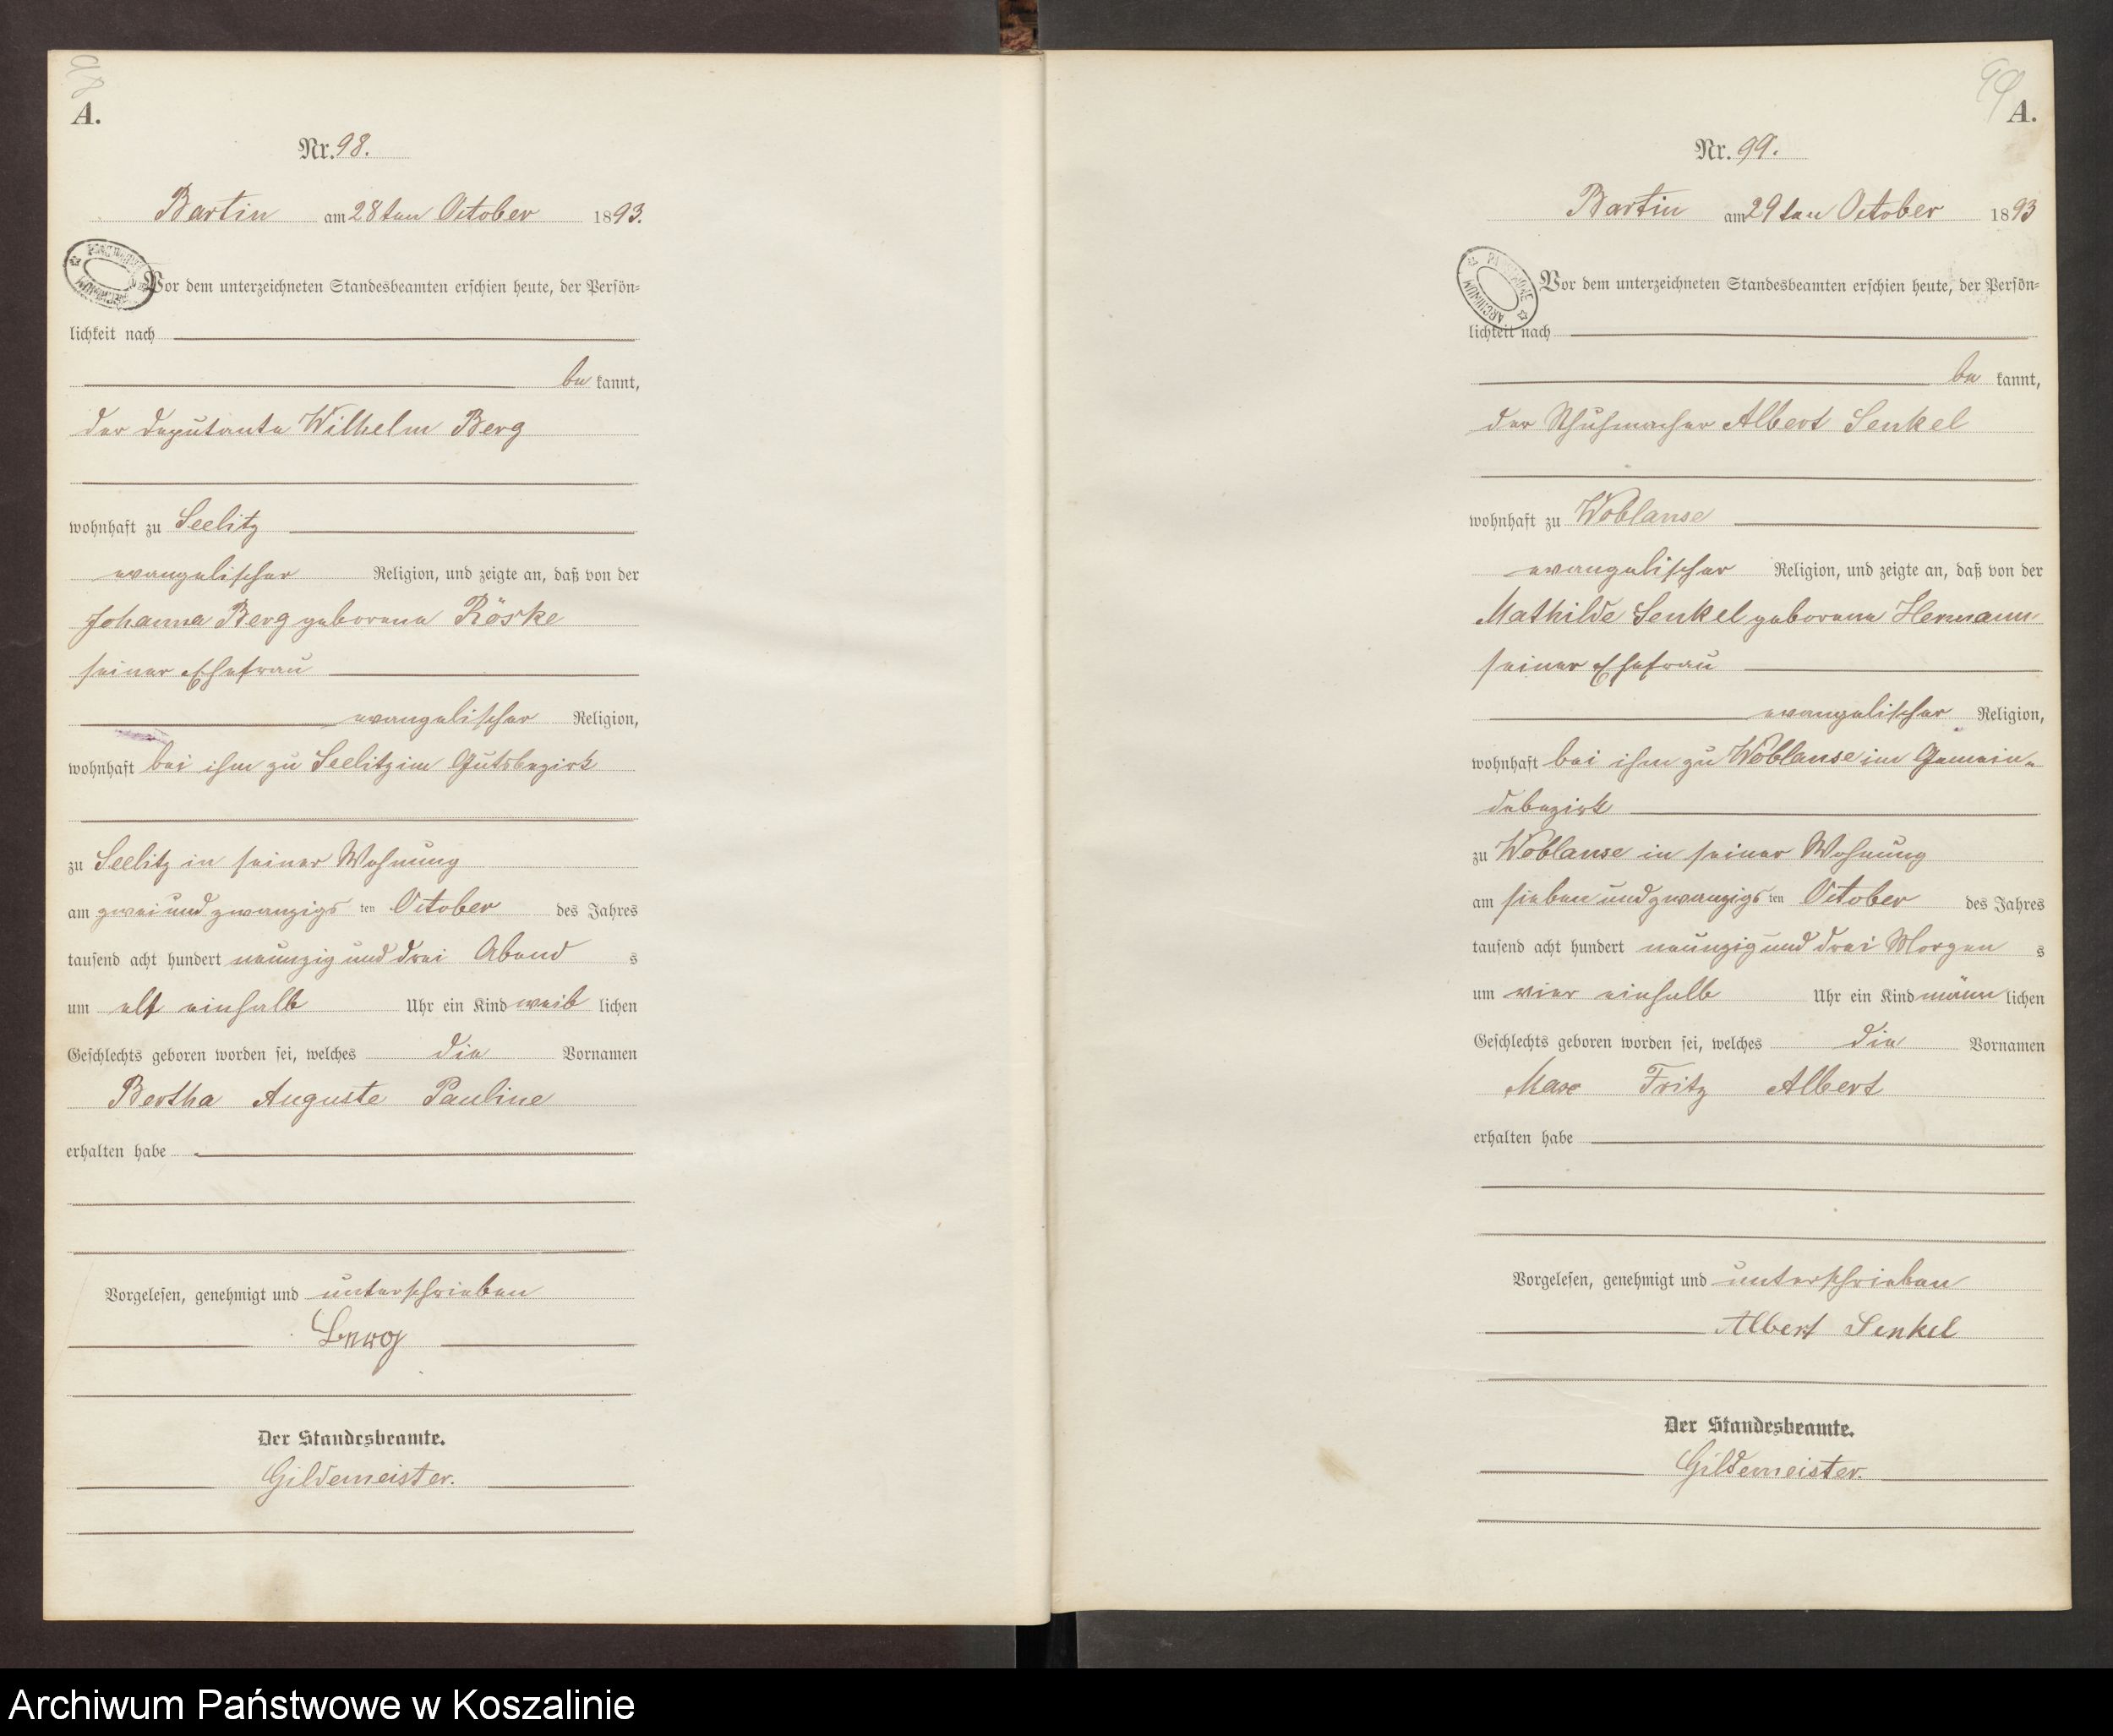 98
A.
Nr. 98.
Bartin am 28ten October 1893.
Vor dem unterzeichneten Standesbeamten erschien heute, der Persön-
lichkeit nach
be kannt,
der Deputante Wilhelm Berg
wohnhaft zu Seelitz
evangelischer Religion, und zeigte an, daß von der
Johanna Berg geborene Röske
seiner Ehefrau
evangelischer Religion,
wohnhaft bei ihm zu Seelitz im Gutsbezirk
zu Seelitz in seiner Wohnung
am zwei und zwanzigs ten October des Jahres
tausend acht hundert neunzig und drei Abend s
um elf einhalb Uhr ein Kind weib lichen
Geschlechts geboren worden sei, welches die Vornamen
Bertha Auguste Pauline
erhalten habe
Vorgelesen, genehmigt und unterschrieben
Berg
Der Standesbeamte.
Gildemeister.
99
A.
Nr. 99.
Bartin am 29ten October 1893
Vor dem unterzeichneten Standesbeamten erschien heute, der Persön-
lichkeit nach
be kannt,
der Schuhmacher Albert Senkel
wohnhaft zu Woblanse
evangelischer Religion, und zeigte an, daß von der
Mathilde Senkel geborene Hermann
seiner Ehefrau
evangelischer Religion,
wohnhaft bei ihm zu Woblanse im Gemein-
debezirk
zu Woblanse in seiner Wohnung
am sieben und zwanzigs ten October des Jahres
tausend acht hundert neunzig und drei Morgen s
um vier einhalb Uhr ein Kind männ lichen
Geschlechts geboren worden sei, welches die Vornamen
Max Fritz Albert
erhalten habe
Vorgelesen, genehmigt und unterschrieben
Albert Senkel
Der Standesbeamte.
Gildemeister.
Archiwum Państwowe w Koszalinie